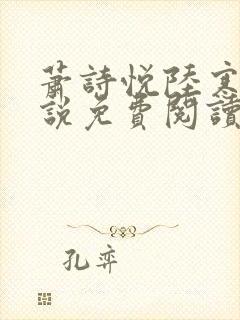 蕭詩悅陸寒
說免費閱讀
孔弈